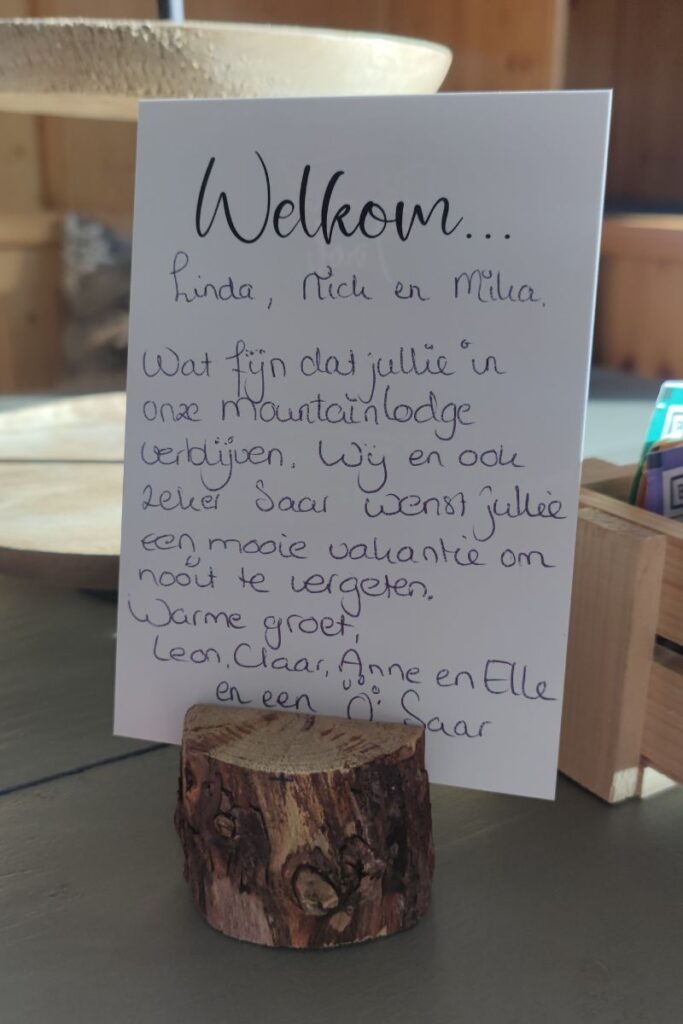 Welkom...
Linda, Nick en Mika.
Wat fijn dat jullie in
onze mountainlodge
verblijven. Wij en ook
zeker Saar wenst jullie
een mooie vakantie om
nooit te vergeten.
Warme groet,
Leon, Claar, Anne en Elle
en een Saar